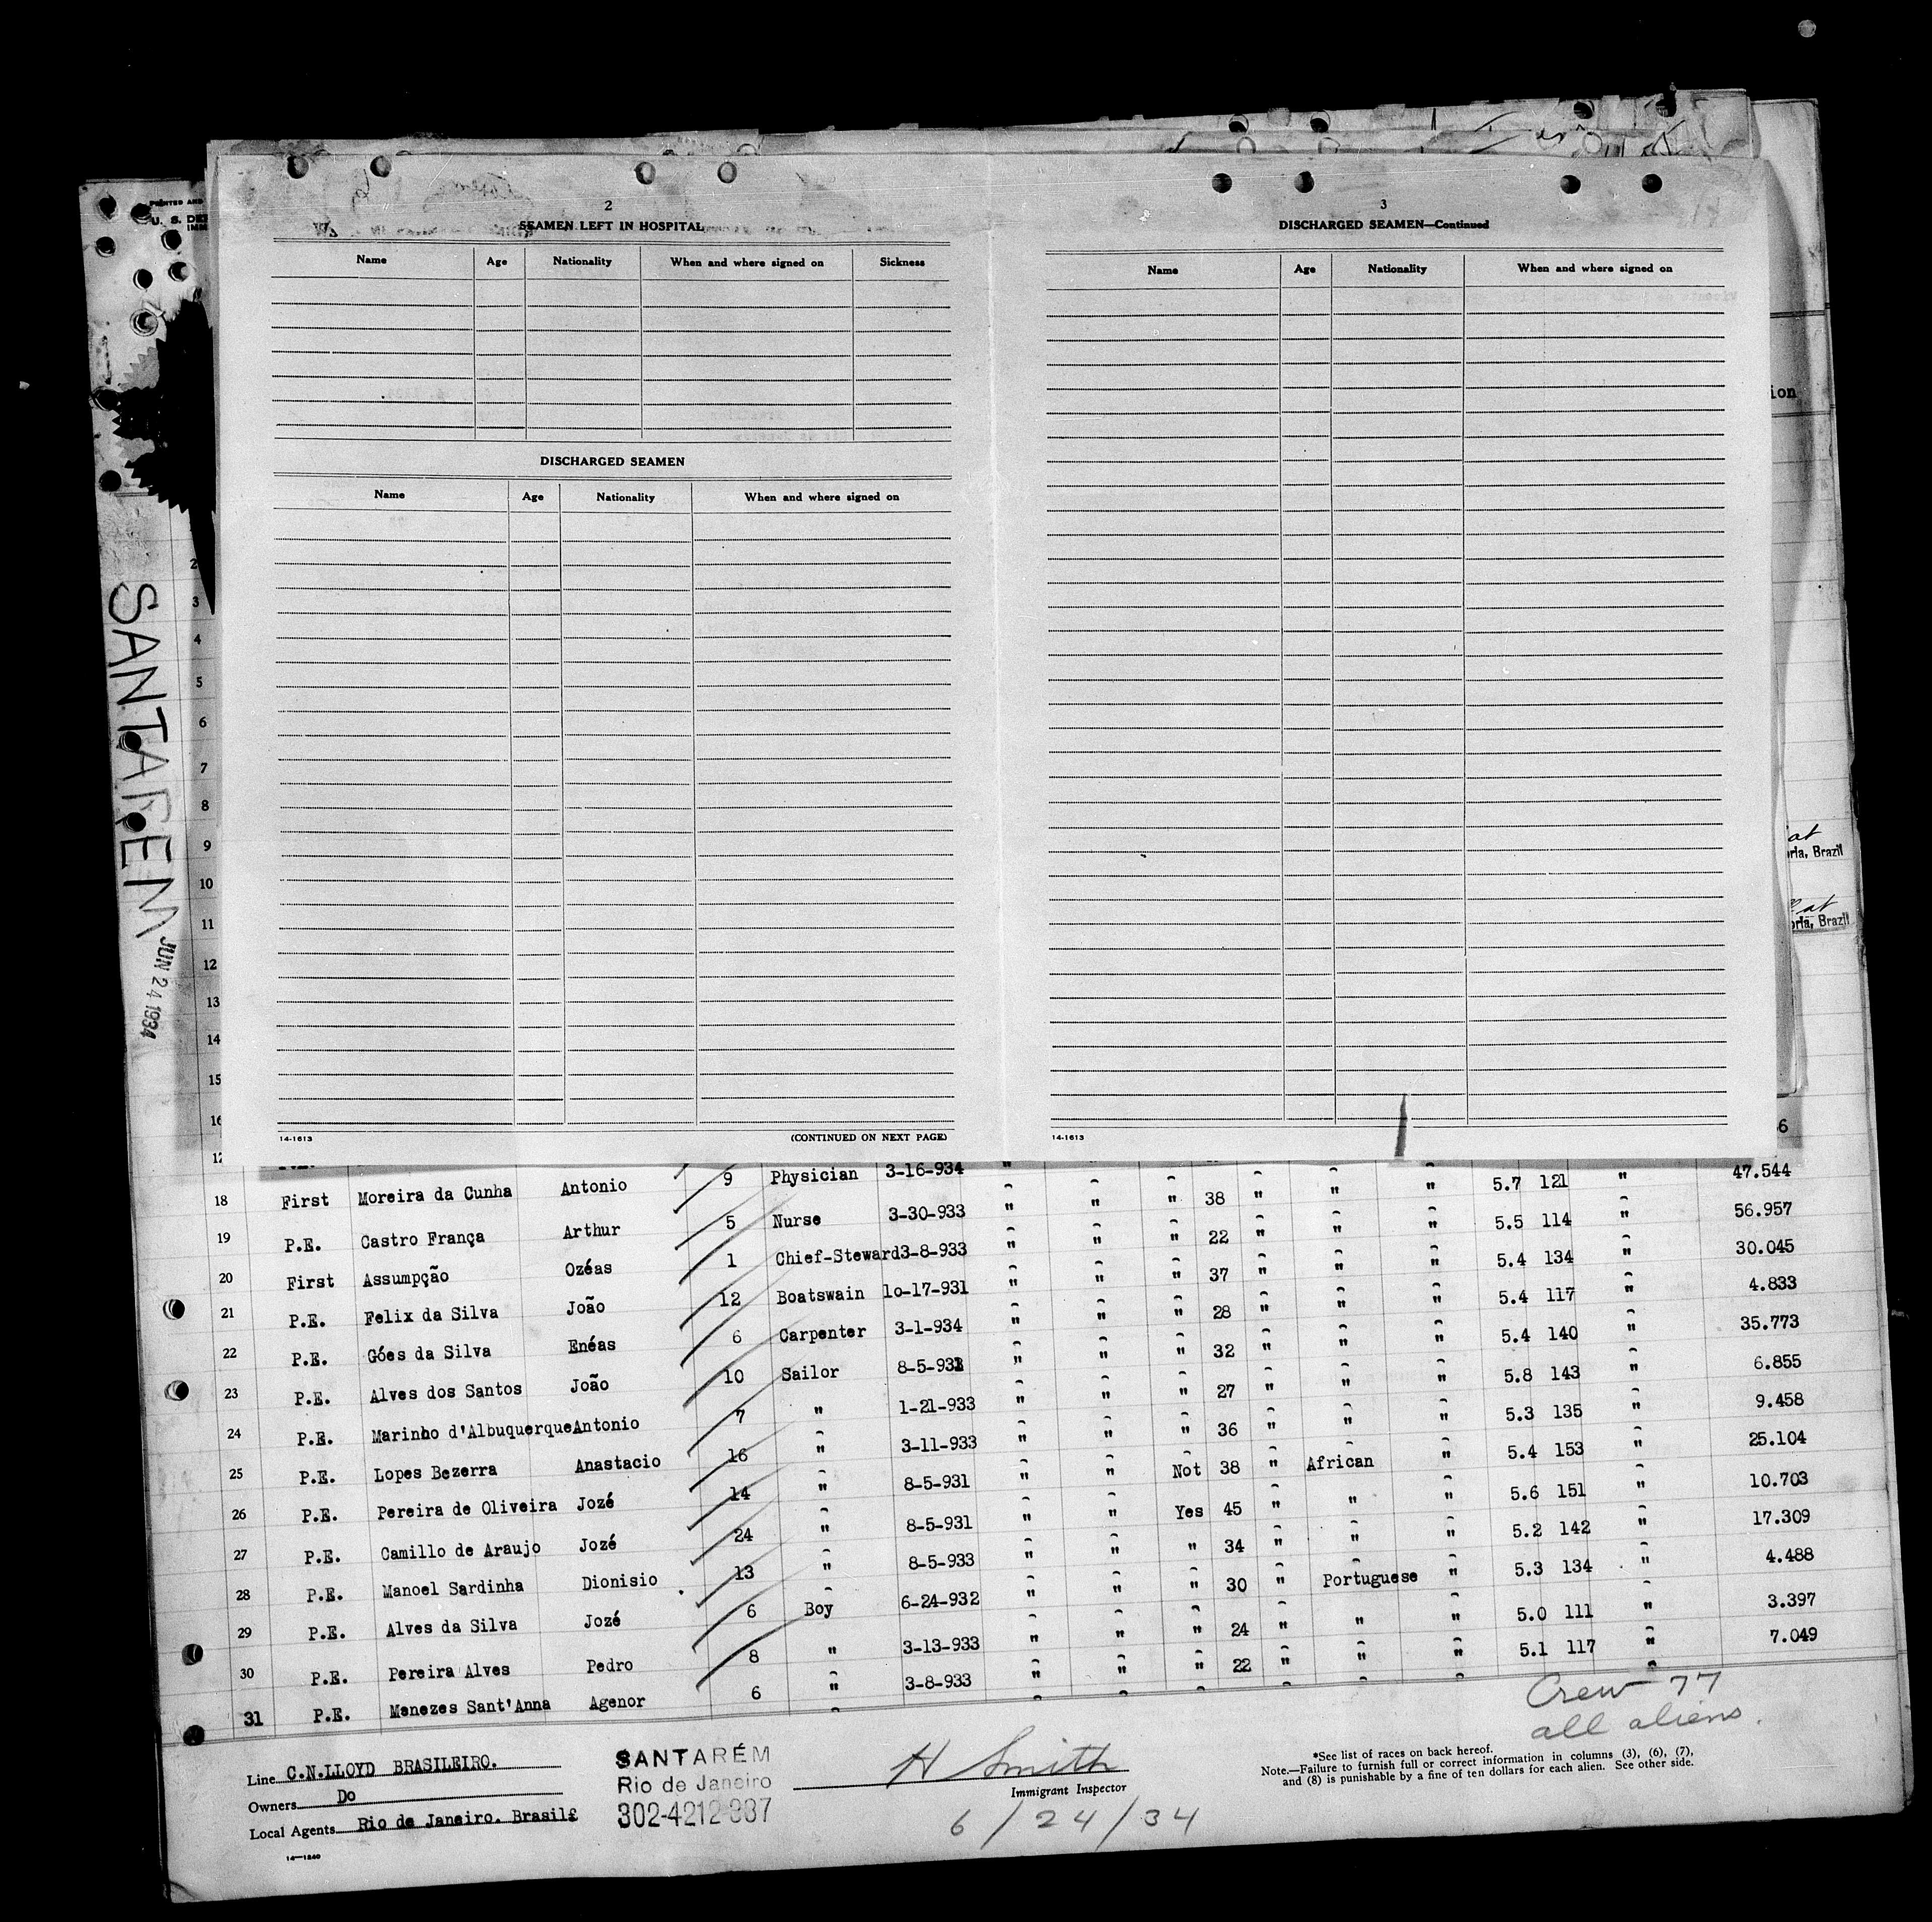 PRINTED AND
U. S. DE
2
SEAMEN LEFT IN HOSPITAL
Name Age Nationality When and where signed on Sickness
DISCHARGED SEAMEN
Name Age Nationality When and where signed on
14-1613 (CONTINUED ON NEXT PAGE)
3
DISCHARGED SEAMEN—Continued
Name Age Nationality When and where signed on
14-1613
ion
at
ria, Brazil
at
oria, Brazil
6
SANTAREM
JUN 24 1934
2
3
4
5
6
7
8
9
10
11
12
13
14
15
16
18 First Moreira da Cunha Antonio 9 Physician 3-16-934 "
19 P.E. Castro França Arthur 5 Nurse 3-30-933 " " " 38 " " " 5.7 121 " 47.544
20 First Assumpção Ozéas 1 Chief-Steward 3-8-933 " " " 22 " " " 5.5 114 " 56.957
21 P.E. Felix da Silva João 12 Boatswain 1o-17-931 " " " 37 " " " 5.4 134 " 30.045
22 P.E. Góes da Silva Enéas 6 Carpenter 3-1-934 " " " 28 " " " 5.4 117 " 4.833
23 P.E. Alves dos Santos João 10 Sailor 8-5-93 " " " 32 " " " 5.4 140 " 35.773
24 P.E. Marinho d'Albuquerque Antonio 7 " 1-21-933 " " " 27 " " " 5.8 143 " 6.855
25 P.E. Lopes Bezerra Anastacio 16 " 3-11-933 " " " 36 " " " 5.3 135 " 9.458
26 P.E. Pereira de Oliveira Jozé 14 " 8-5-931 " " Not 38 " African " 5.4 153 " 25.104
27 P.E. Camillo de Araujo Jozé 24 " 8-5-931 " " Yes 45 " " " 5.6 151 " 10.703
28 P.E. Manoel Sardinha Dionisio 13 " 8-5-933 " " " 34 " " " 5.2 142 " 17.309
29 P.E. Alves da Silva Jozé 6 Boy 6-24-932 " " " 30 " Portuguese " 5.3 134 " 4.488
30 P.E. Pereira Alves Pedro 8 " 3-13-933 " " " 24 " " " 5.0 111 " 3.397
31 P.E. Menezes Sant'Anna Agenor 6 " 3-8-933 " " " 22 " " " 5.1 117 " 7.049
Crew 77
all aliens.
Line C.N.LLOYD BRASILEIRO.
Owners Do
Local Agents Rio de Janeiro. Brasil
14—1240
SANTARÉM
Rio de Janeiro
302-4212-937
H Smith
Immigrant Inspector
6/24/34
*See list of races on back hereof.
Note.—Failure to furnish full or correct information in columns (3), (6), (7),
and (8) is punishable by a fine of ten dollars for each alien. See other side.